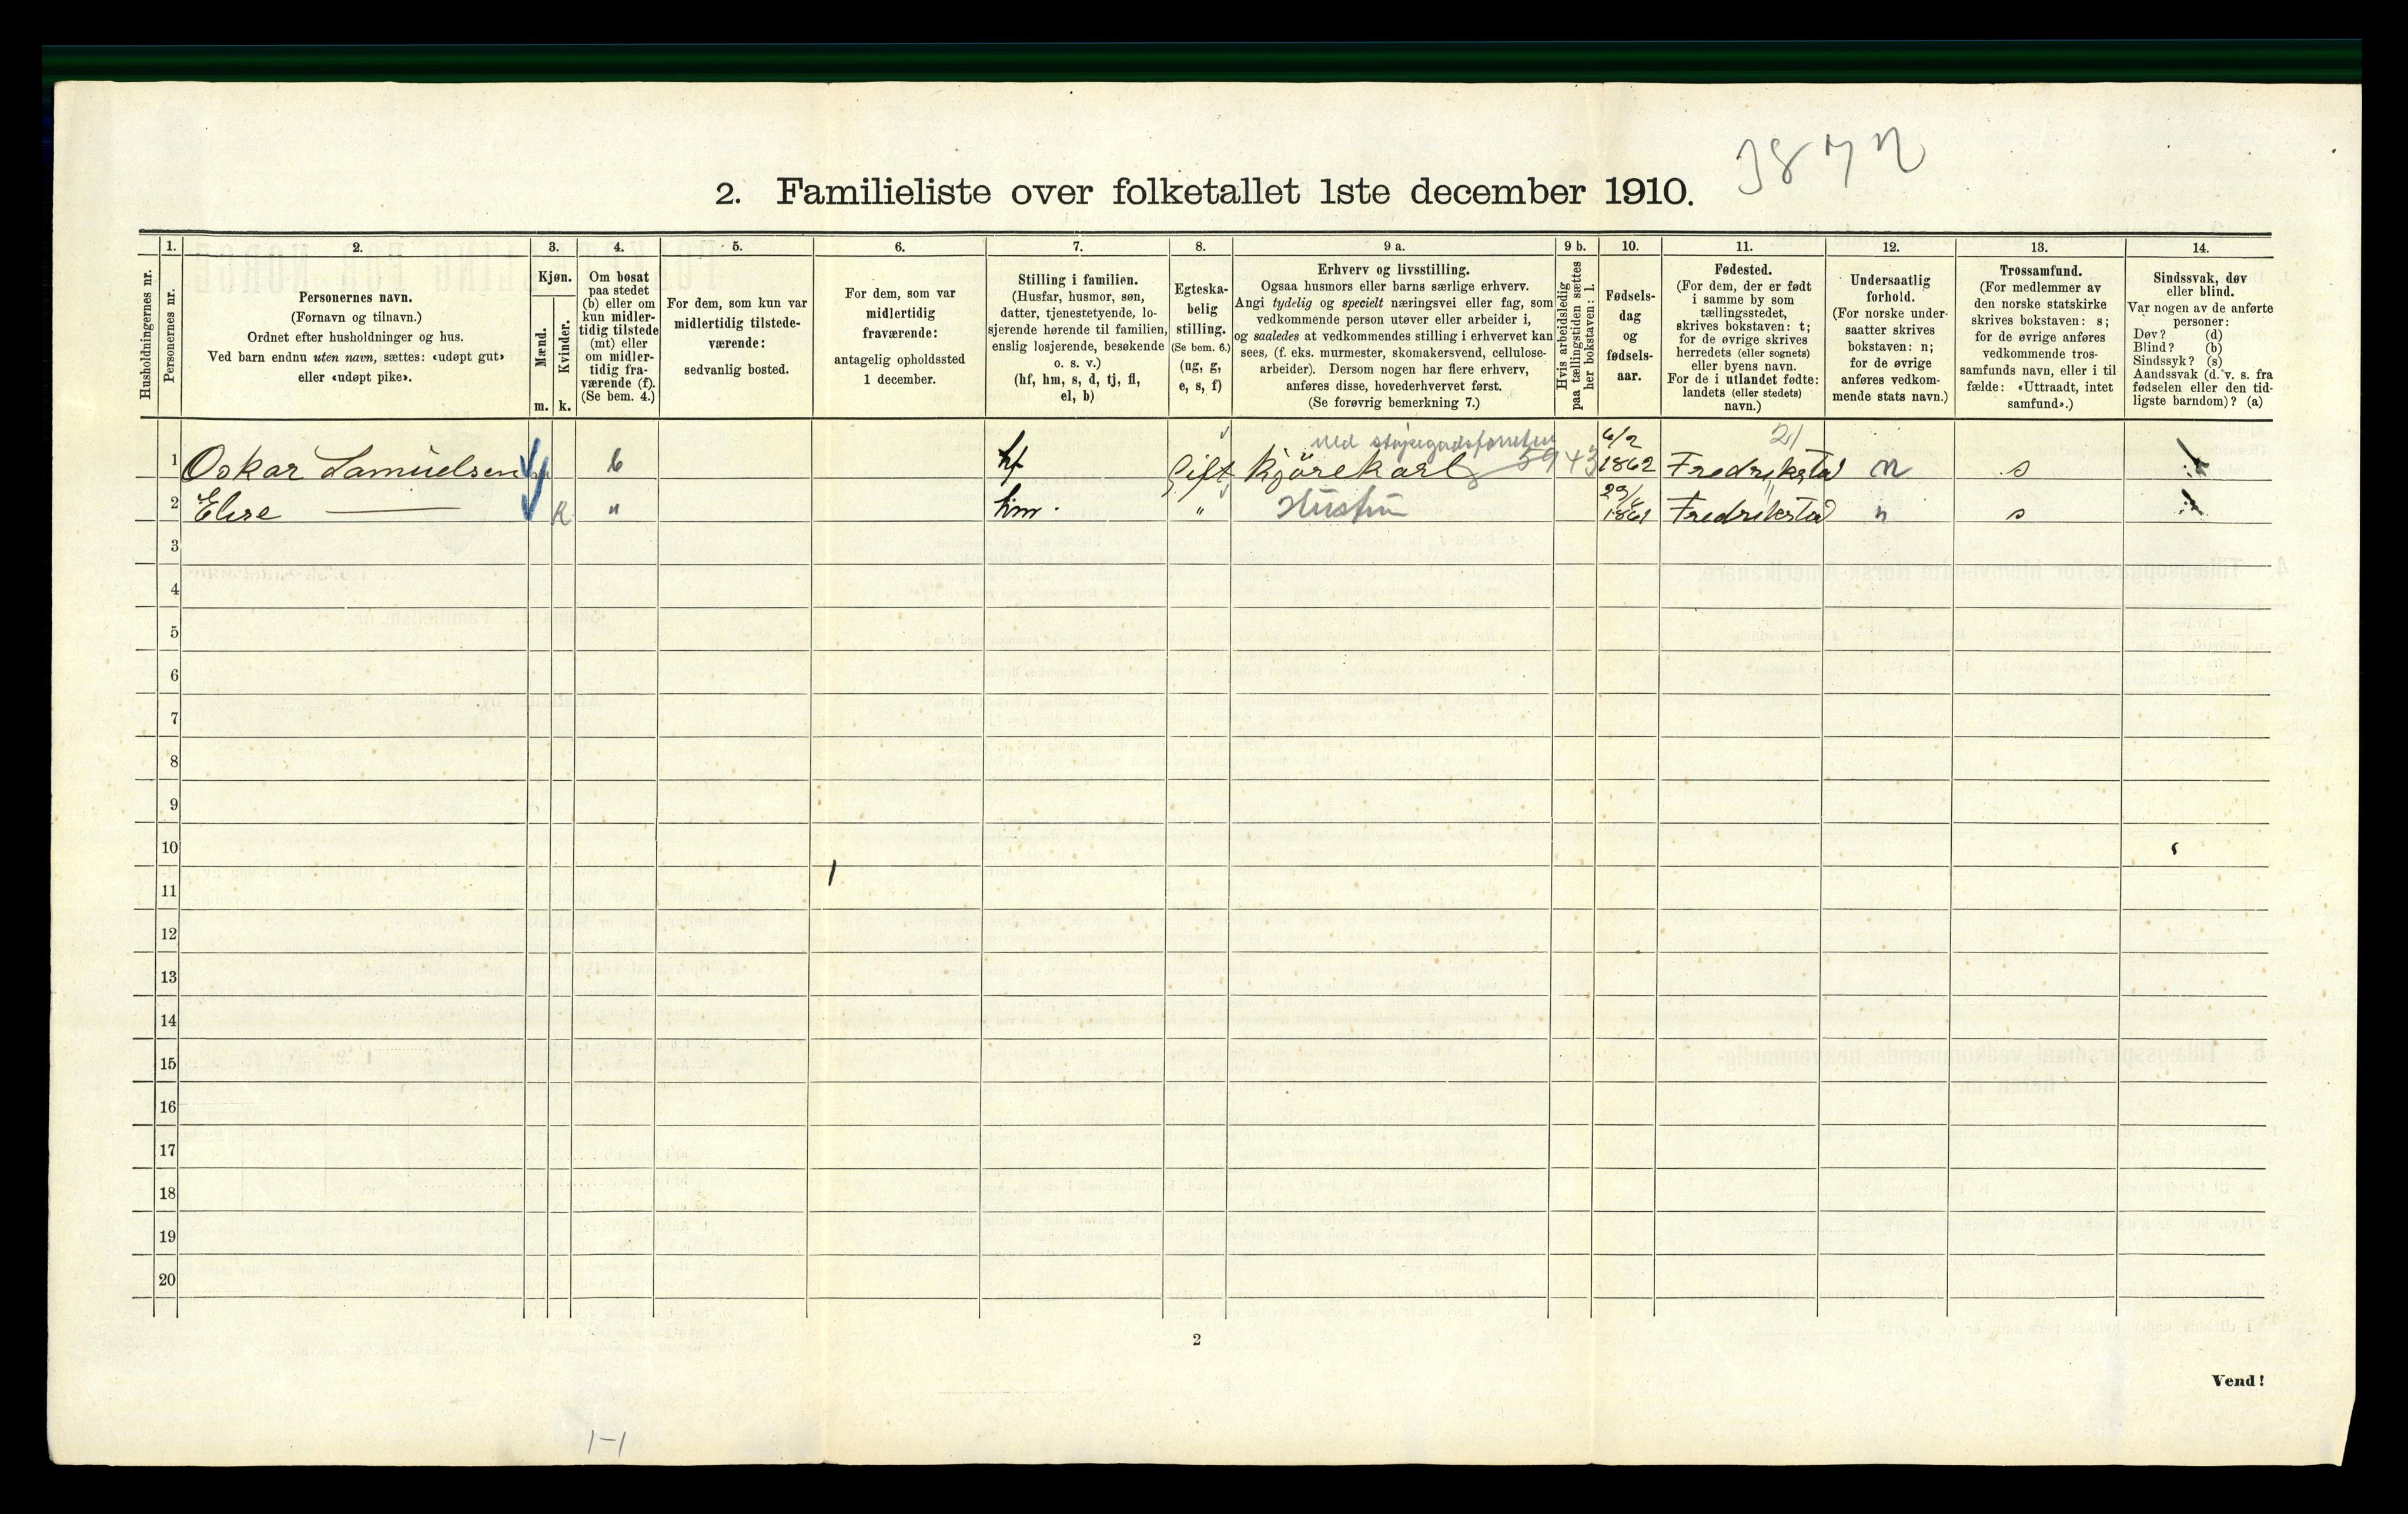 3872
2. Familieliste over folketallet 1ste december 1910.
Husholdningernes nr.
1.
Personernes nr.
2.
Personernes navn.
(Fornavn og tilnavn.)
Ordnet efter husholdninger og hus.
Ved barn endnu uten navn, sættes: «udøpt gut»
eller «udøpt pike».
3.
Kjøn.
Mænd.
Kvinder.
m. k.
4.
Om bosat
paa stedet
(b) eller om
kun midler-
tidig tilstede
(mt) eller
om midler-
tidig fra-
værende (f).
(Se bem. 4.)
5.
For dem, som kun var
midlertidig tilstede-
værende:
sedvanlig bosted.
6.
For dem, som var
midlertidig
fraværende:
antagelig opholdssted
1 december.
7.
Stilling i familien.
(Husfar, husmor, søn,
datter, tjenestetyende, lo-
sjerende hørende til familien,
enslig losjerende, besøkende
o. s. v.)
(hf, hm, s, d, tj, fl,
el, b)
8.
Egteska-
belig
stilling.
(Se bem. 6.)
(ug, g,
e, s, f)
9 a.
Erhverv og livsstilling.
Ogsaa husmors eller barns særlige erhverv.
Angi tydelig og specielt næringsvei eller fag, som
vedkommende person utøver eller arbeider i,
og saaledes at vedkommendes stilling i erhvervet kan
sees, (f. eks. murmester, skomakersvend, cellulose-
arbeider). Dersom nogen har flere erhverv,
anføres disse, hovederhvervet først.
(Se forøvrig bemerkning 7.)
9 b.
Hvis arbeidsledig
paa tællingstiden sættes
her bokstaven: l.
10.
Fødsels-
dag
og
fødsels-
aar.
11.
Fødested.
(For dem, der er født
i samme by som
tællingsstedet,
skrives bokstaven: t;
for de øvrige skrives
herredets (eller sognets)
eller byens navn.
For de i utlandet fødte:
landets (eller stedets)
navn.)
12.
Undersaatlig
forhold.
(For norske under-
saatter skrives
bokstaven: n;
for de øvrige
anføres vedkom-
mende stats navn.)
13.
Trossamfund.
(For medlemmer av
den norske statskirke
skrives bokstaven: s;
for de øvrige anføres
vedkommende tros-
samfunds navn, eller i til
fælde: «Uttraadt, intet
samfund».)
14.
Sindssvak, døv
eller blind.
Var nogen av de anførte
personer:
Døv? (d)
Blind? (b)
Sindssyk? (s)
Aandssvak (d. v. s. fra
fødselen eller den tid-
ligste barndom)? (a)
1 Oskar Samuelsen b hf Gift kjörekarl 6/2 1862 Fredrikstad n s
2 Elise — k " hm. " Hustru 1861 Fredrikstad n s
3
4
5
6
7
8
9
10
11
12
13
14
15
16
17
18
19
20
2
Vend!
1-1